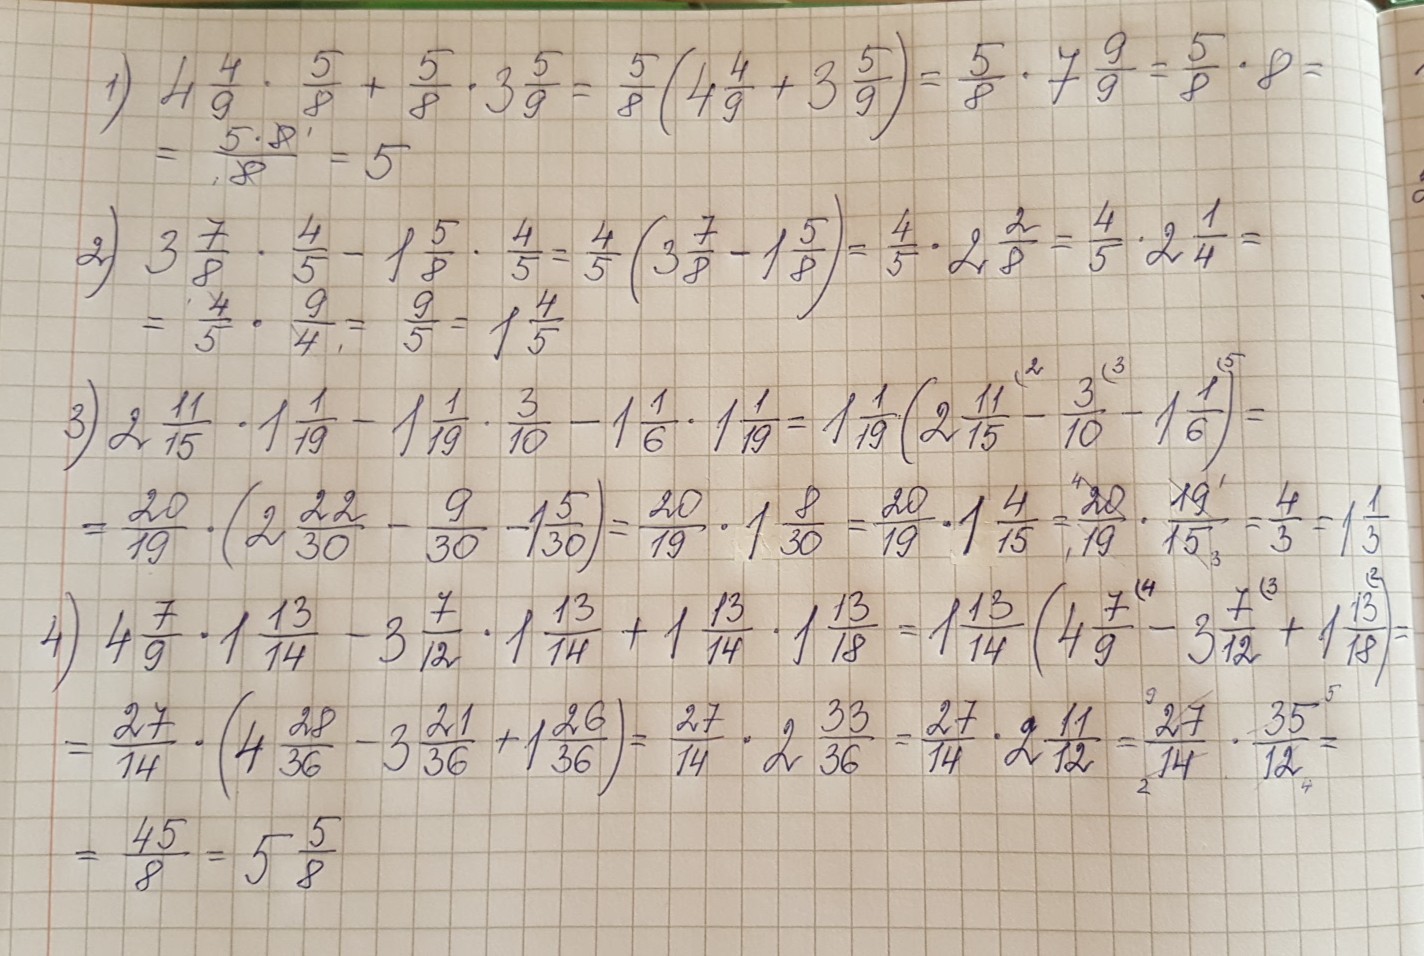 1) 4 4/9 · 5/8 + 5/8 · 3 5/9 = 5/8 (4 4/9 + 3 5/9) = 5/8 · 7 9/9 = 5/8 · 8 =
= 5·8/8 = 5
2) 3 7/8 · 4/5 − 1 5/8 · 4/5 = 4/5 (3 7/8 − 1 5/8) = 4/5 · 2 2/8 = 4/5 · 2 1/4 =
= 4/5 · 9/4 = 9/5 = 1 4/5
3) 2 11/15 · 1 1/19 − 1 1/19 · 3/10 − 1 1/6 · 1 1/19 = 1 1/19 (2 11/15 (2 − 3/10 (3 − 1 1/6 (5) =
= 20/19 · (2 22/30 − 9/30 − 1 5/30) = 20/19 · 1 8/30 = 20/19 · 1 4/15 = 4 20/19 1 · 19 1/15 3 = 4/3 = 1 1/3
4) 4 7/9 · 1 13/14 − 3 7/12 · 1 13/14 + 1 13/14 · 1 13/18 = 1 13/14 (4 7/9 (4 − 3 7/12 (3 + 1 13/18 (2) =
= 27/14 · (4 28/36 − 3 21/36 + 1 26/36) = 27/14 · 2 33/36 = 27/14 · 2 11/12 = 9 27/14 2 · 35 5/12 4 =
= 45/8 = 5 5/8